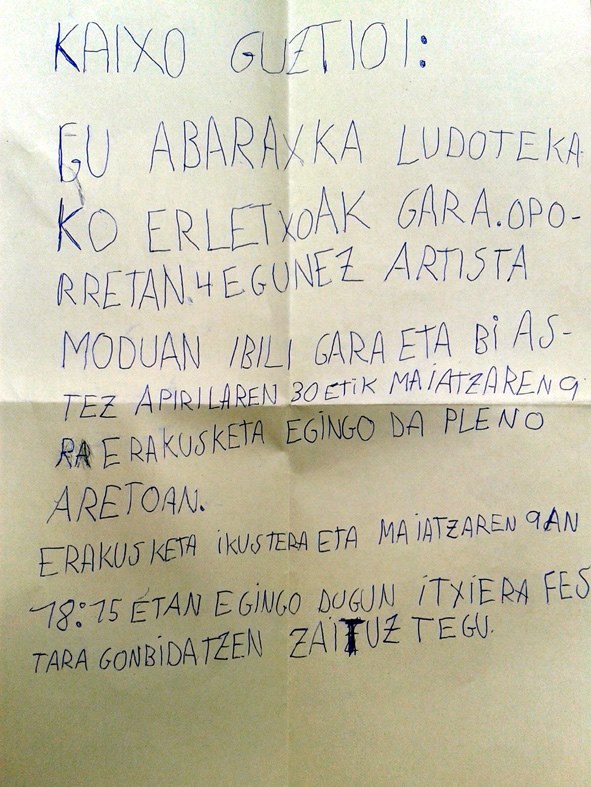 KAIXO GUZTIOI:
GU ABARAXKA LUDOTEKA
KO ERLETXOAK GARA. OPO-
RRETAN. 4 EGUNEZ ARTISTA
MODUAN IBILI GARA ETA Bi AS-
TEZ APIRILAREN 30 ETiK MAIATZAREN 9
RA ERAKUSKETA EGINGO DA PLENO
ARETOAN.
ERAKUSKETA iKUSTERA ETA MAIATZAREN 9AN
18:15 ETAN EGINGO DUGUN iTXIERA FES
TARA GONBiDATZEN ZAITUZTEGU.